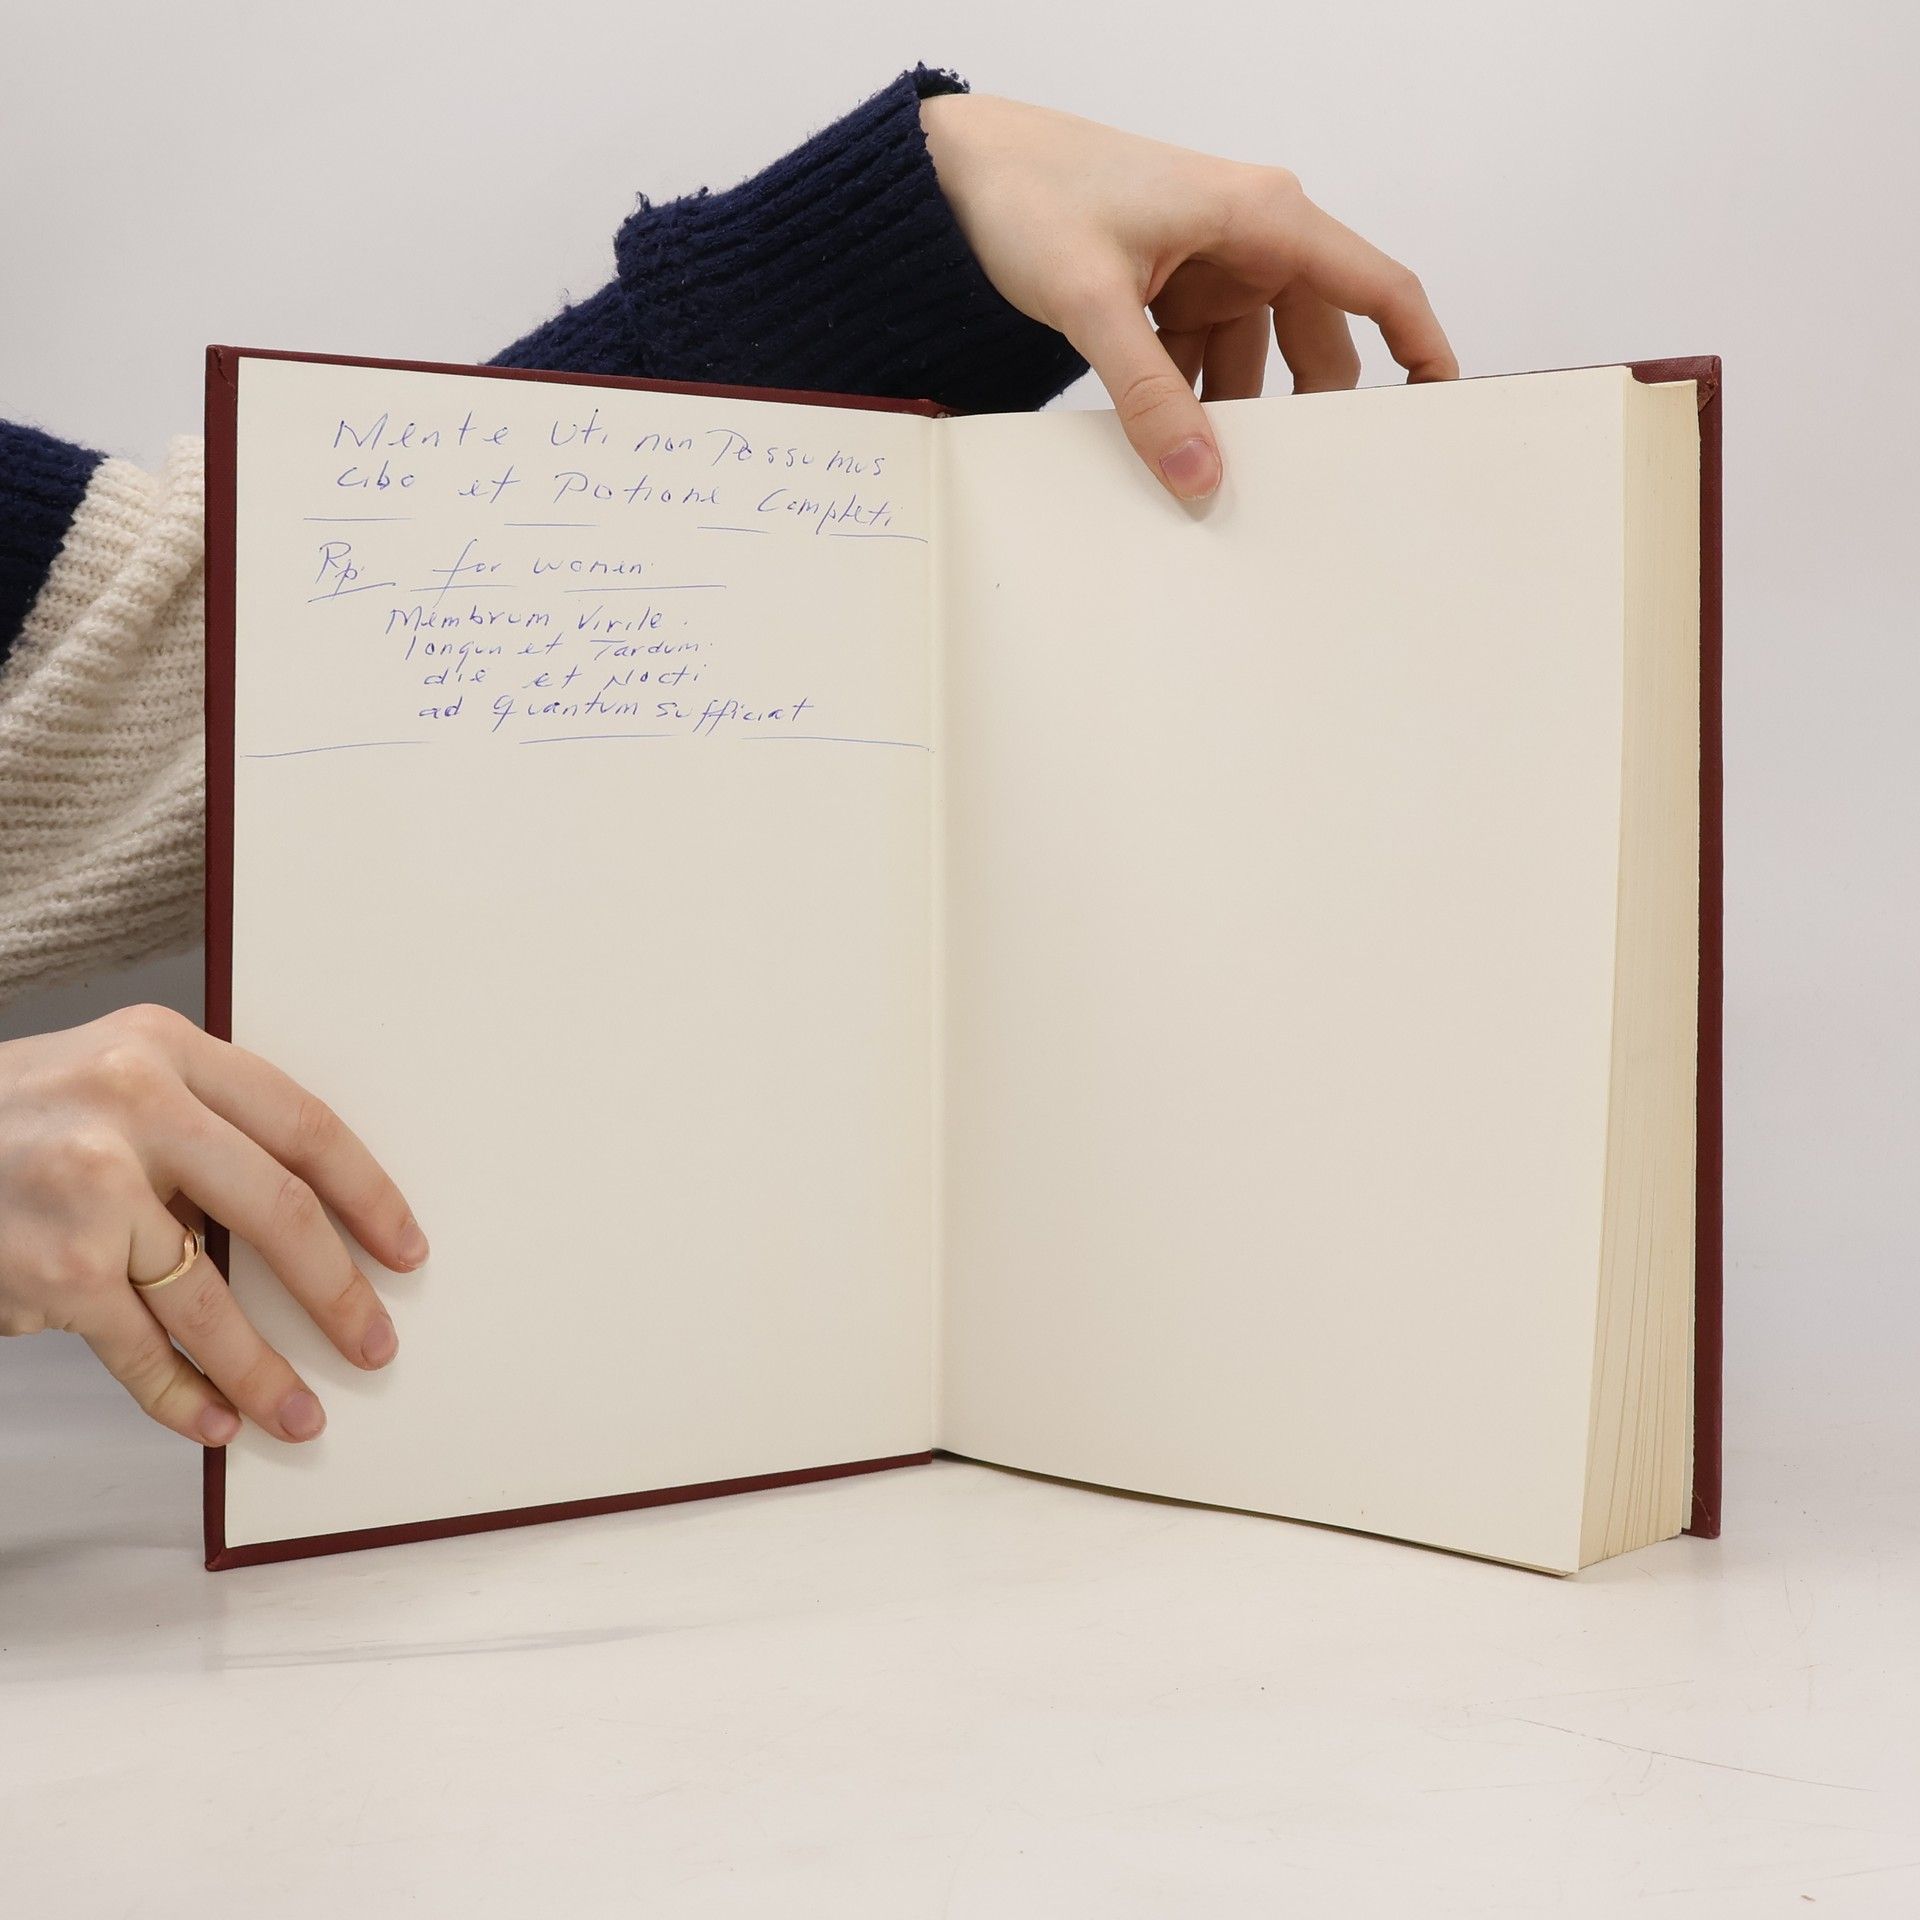 Mente Uti non Possumus
cibo et Potione Completi
Rp. for women.
Membrum Virile.
longum et Tardum.
die et Nocti
ad quantum sufficiat